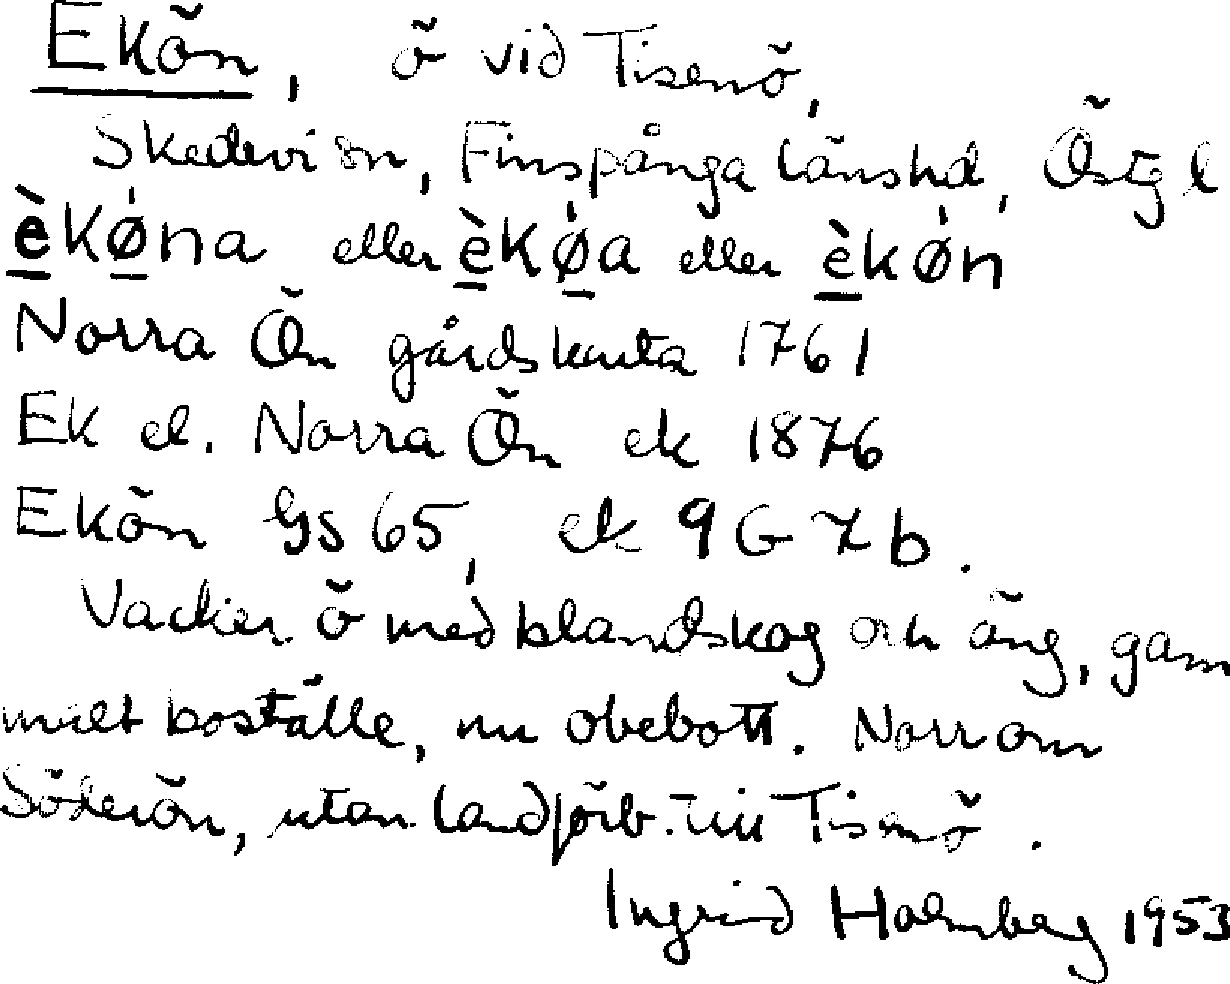 Ekön, ö vid Tisenö,
Skedevi sn, Finspånga länshd, Östg l
èkǿna eller èkǿa eller èkǿn
Norra Ön gårdskarta 1761
Ek el. Norra Ön ek 1876
Ekön GS 65, ek 9 G 7 b.
Vacker ö med blandskog och äng, gam
malt boställe, nu obebott. Norr om
Söderön, utan landförb. till Tisenö.
Ingrid Holmberg 1953